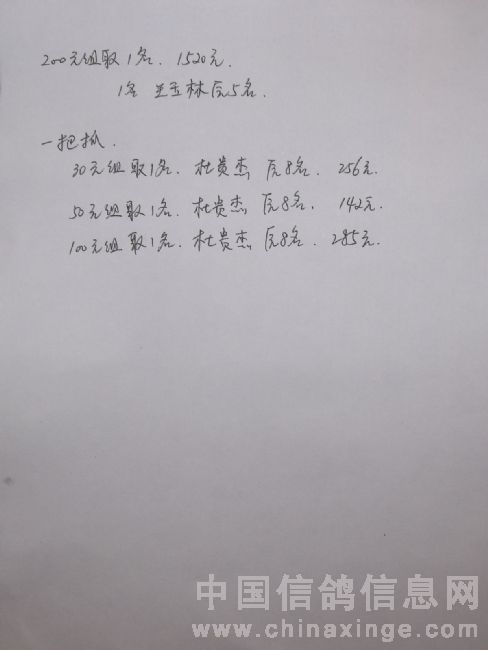 200元组取1名. 1520元.
1名 兰玉林 原5名.
一把抓.
30元组取1名. 杜贵杰 原8名. 256元.
50元组取1名. 杜贵杰 原8名. 142元.
100元组取1名. 杜贵杰 原8名. 285元.
中国信鸽信息网
www.chinaxinge.com